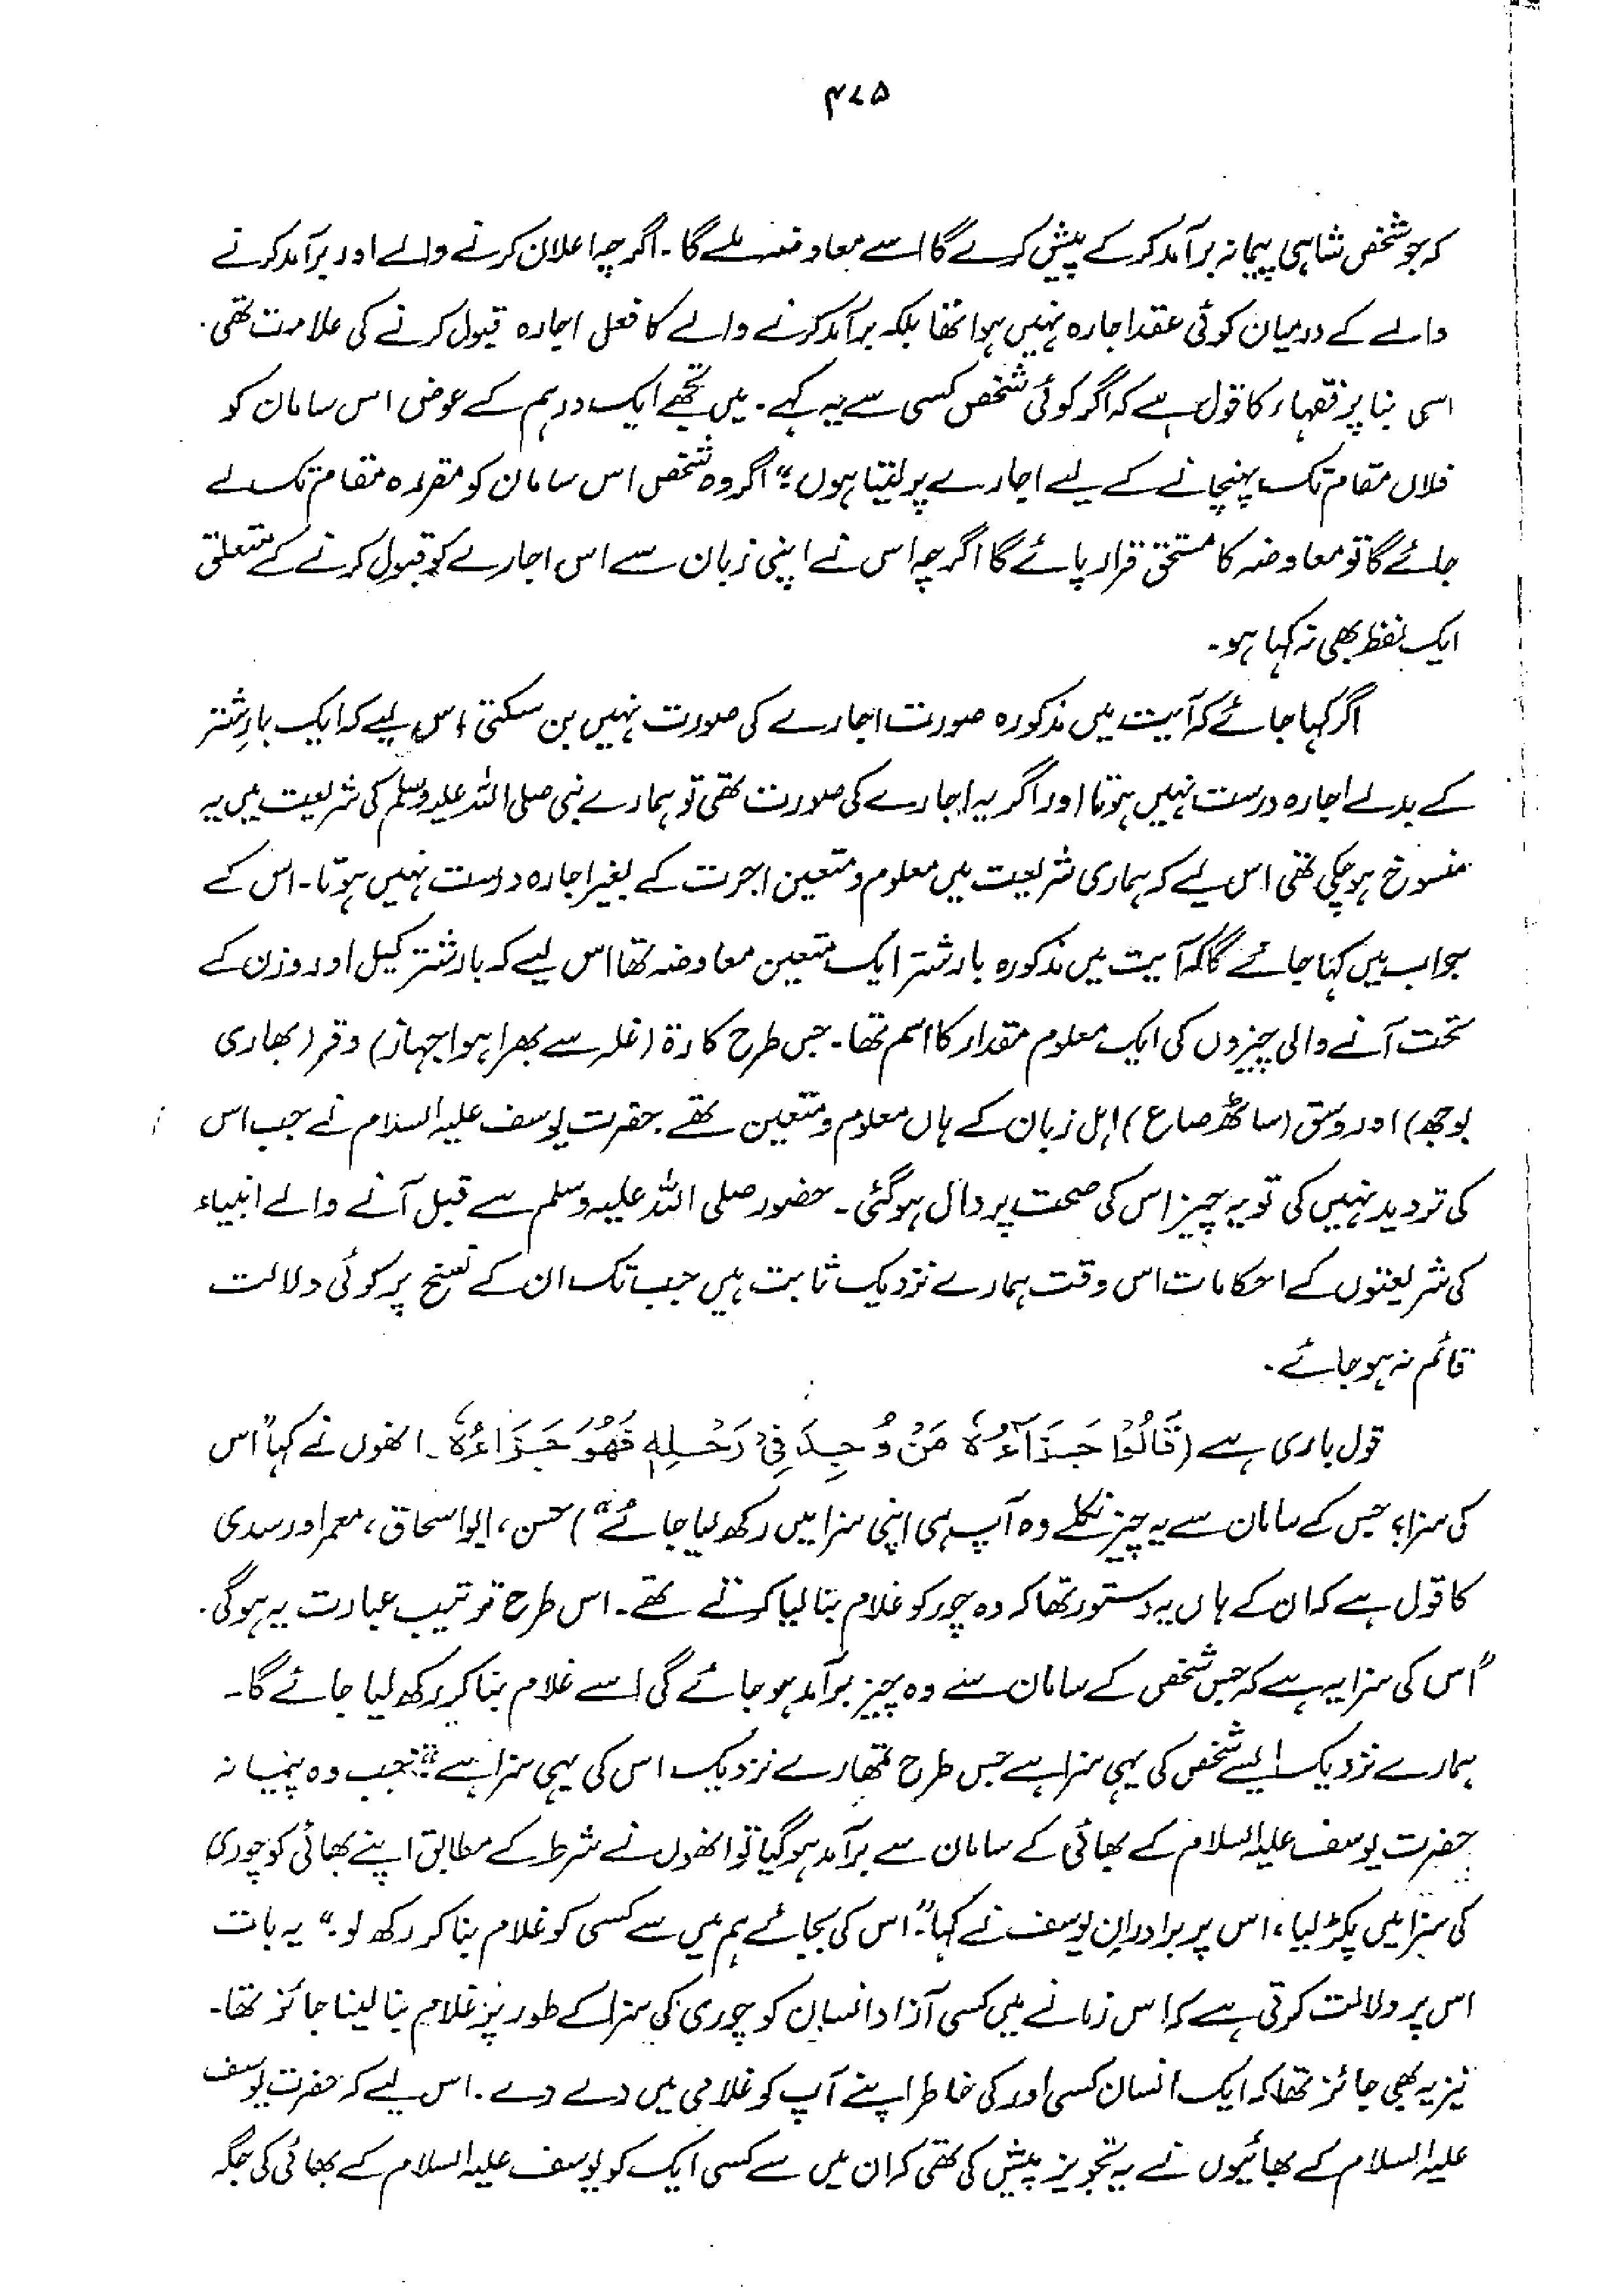 ۴۷۵
کہ جو شخص شاہی پیمانہ برآمد کر کے پیش کرے گا اسے معاوضہ ملے گا۔ اگرچہ اعلان کرنے والے اور برآمد کرنے
والے کے درمیان کوئی عقد اجارہ نہیں ہوا تھا بلکہ برآمد کرنے والے کا فعل اجارہ قبول کرنے کی علامت تھی۔
اسی بنا پر فقہاء کا قول ہے کہ اگر کوئی شخص کسی سے یہ کہے۔ میں تجھے ایک درہم کے عوض اس سامان کو
فلاں مقام تک پہنچانے کے لیے اجارے پر لیتا ہوں؛" اگر وہ شخص اس سامان کو مقررہ مقام تک لے
جائے گا تو معاوضہ کا مستحق قرار پائے گا اگرچہ اس نے اپنی زبان سے اس اجارے کو قبول کرنے کے متعلق
ایک لفظ بھی نہ کہا ہو۔
اگر کہا جائے کہ آیت میں مذکورہ صورت اجارے کی صورت نہیں بن سکتی، اس لیے کہ ایک بارِ شتر
کے بدلے اجارہ درست نہیں ہوتا اور اگر یہ اجارے کی صورت تھی تو ہمارے نبی صلی اللہ علیہ وسلم کی شریعت میں یہ
منسوخ ہو چکی تھی اس لیے کہ ہماری شریعت میں معلوم و متعین اجرت کے بغیر اجارہ درست نہیں ہوتا۔ اس کے
جواب میں کہا جائے گا کہ آیت میں مذکورہ بار شتر ایک متعین معاوضہ تھا اس لیے کہ بار شتر کیل اور وزن کے
تحت آنے والی چیزوں کی ایک معلوم مقدار کا اسم تھا۔ جس طرح کارۃ (غلہ سے بھرا ہوا جہاز) وقر (بھاری
بوجھ) اور وسق (ساٹھ صاع) اہل زبان کے ہاں معلوم و متعین تھے۔ حضرت یوسف علیہ السلام نے جب اس
کی تردید نہیں کی تو یہ چیز اس کی صحت پر دال ہو گئی۔ حضور صلی اللہ علیہ وسلم سے قبل آنے والے انبیاء
کی شریعتوں کے احکامات اس وقت ہمارے نزدیک ثابت ہیں جب تک ان کے نسخ پر کوئی دلالت
قائم نہ ہو جائے۔
قول باری ہے (قَالُوْا جَزَآؤُہٗ مَنْ وُّجِدَ فِیْ رَحْلِہٖ فَھُوَ جَزَاءُہٗ۔ انھوں نے کہا "اس
کی سزا؛ جس کے سامان سے یہ چیز نکلے وہ آپ ہی اپنی سزا میں رکھ لیا جائے") حسن، ابواسحاق، معمر اور سدی
کا قول ہے کہ ان کے ہاں یہ دستور تھا کہ وہ چور کو غلام بنا لیا کرتے تھے۔ اس طرح ترتیب عبارت یہ ہوگی۔
"اس کی سزا یہ ہے کہ جس شخص کے سامان سے وہ چیز برآمد ہو جائے گی اسے غلام بنا کر رکھ لیا جائے گا۔
ہمارے نزدیک ایسے شخص کی یہی سزا ہے جس طرح تمھارے نزدیک اس کی یہی سزا ہے؛" جب وہ پیمانہ
حضرت یوسف علیہ السلام کے بھائی کے سامان سے برآمد ہو گیا تو انھوں نے شرط کے مطابق اپنے بھائی کو چوری
کی سزا میں پکڑ لیا، اس پر برادرانِ یوسف نے کہا "اس کی بجائے ہم میں سے کسی کو غلام بنا کر رکھ لو۔" یہ بات
اس پر دلالت کرتی ہے کہ اس زمانے میں کسی آزاد انسان کو چوری کی سزا کے طور پر غلام بنا لینا جائز تھا۔
نیز یہ بھی جائز تھا کہ ایک انسان کسی اور کی خاطر اپنے آپ کو غلامی میں دے دے۔ اس لیے کہ حضرت یوسف
علیہ السلام کے بھائیوں نے یہ تجویز پیش کی تھی کہ ان میں سے کسی ایک کو یوسف علیہ السلام کے بھائی کی جگہ